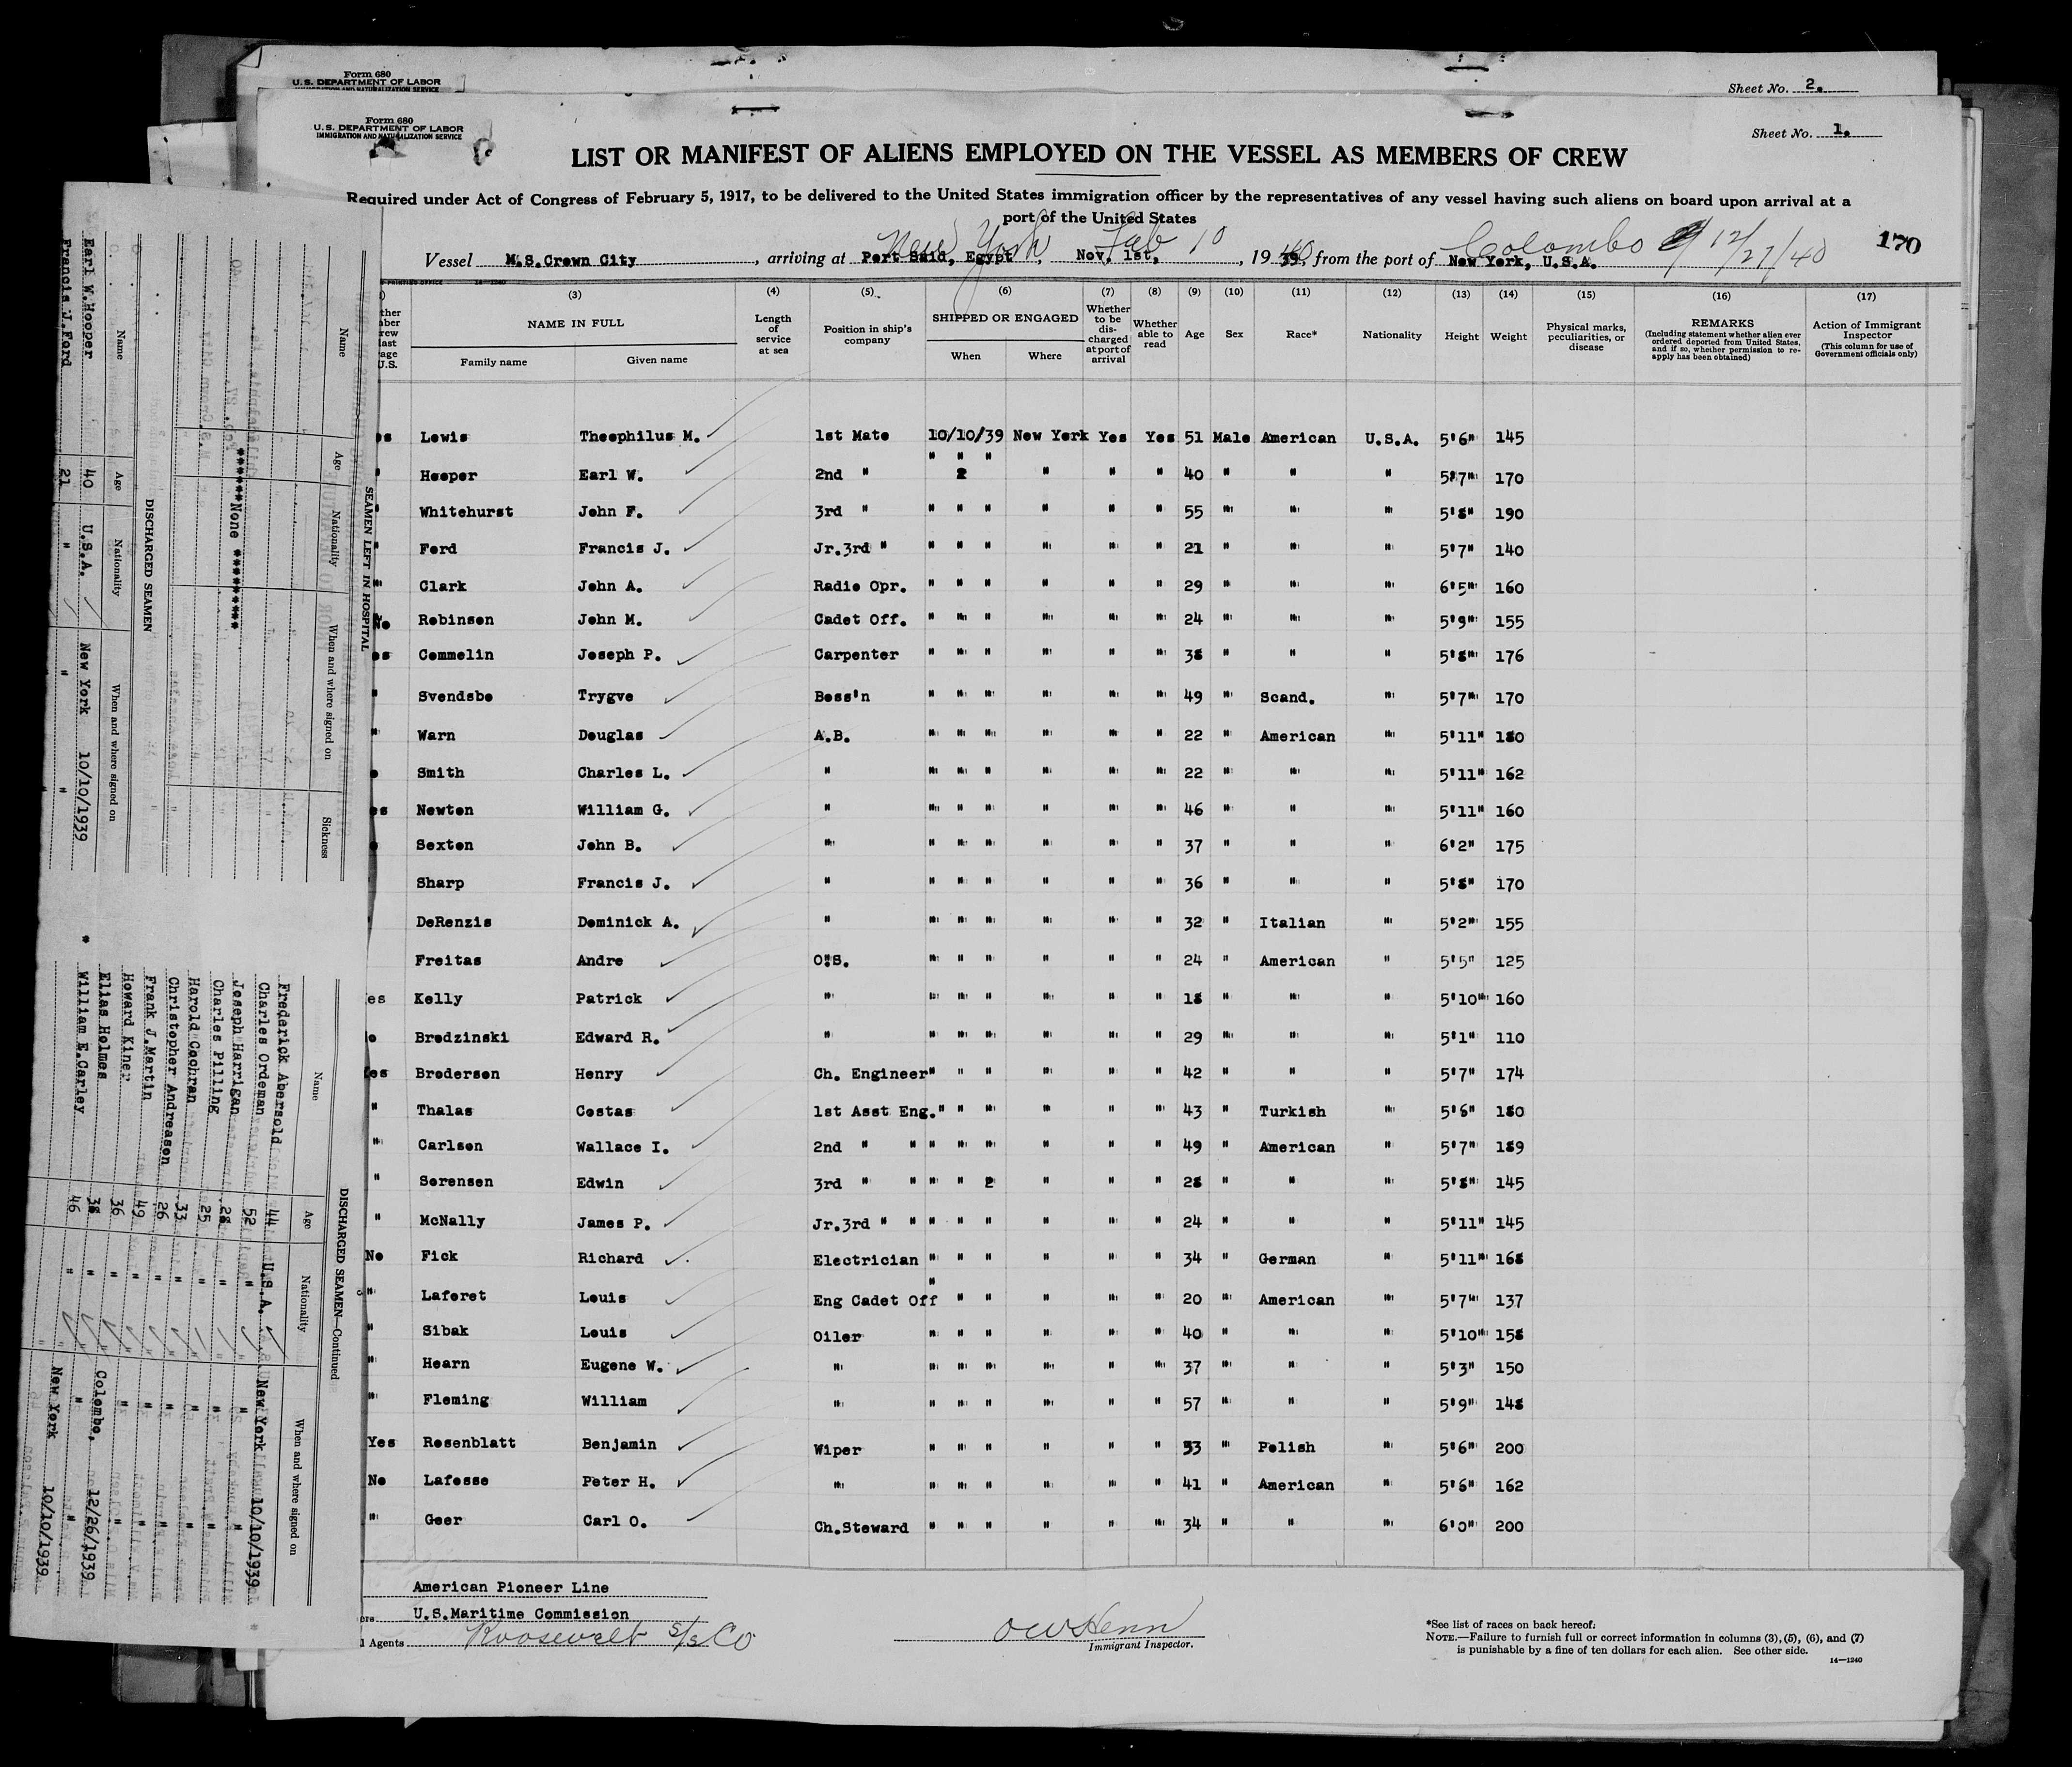 Form 680
U.S. DEPARTMENT OF LABOR
Sheet No. 2.
Form 680
U.S. DEPARTMENT OF LABOR
IMMIGRATION AND NATURALIZATION SERVICE
Sheet No. 1.
LIST OR MANIFEST OF ALIENS EMPLOYED ON THE VESSEL AS MEMBERS OF CREW
Required under Act of Congress of February 5, 1917, to be delivered to the United States immigration officer by the representatives of any vessel having such aliens on board upon arrival at a
port of the United States
New York Feb 10 40 Colombo 12/27/40 170
Vessel M.S.Crown City, arriving at Port Said, Egypt, Nov. 1st, 1939, from the port of New York, U.S.A.
(3) (4) (5) (6) (7) (8) (9) (10) (11) (12) (13) (14) (15) (16) (17)
NAME IN FULL Family name Given name
Length of service at sea
Position in ship's company
SHIPPED OR ENGAGED When Where
Whether to be discharged at port of arrival
Whether able to read
Age Sex Race* Nationality Height Weight
Physical marks, peculiarities, or disease
REMARKS (Including statement whether alien ever ordered deported from United States, and if so, whether permission to re-apply has been obtained)
Action of Immigrant Inspector (This column for use of Government officials only)
es Lewis Theophilus M. 1st Mate 10/10/39 New York Yes Yes 51 Male American U.S.A. 5'6" 145
" Hooper Earl W. 2nd " " " " 2 " " " 40 " " " 5'7" 170
" Whitehurst John F. 3rd " " " " " " " 55 " " " 5'8" 190
" Ford Francis J. Jr.3rd " " " " " " " 21 " " " 5'7" 140
" Clark John A. Radio Opr. " " " " " " 29 " " " 6'5" 160
No Robinson John M. Cadet Off. " " " " " " 24 " " " 5'9" 155
es Commelin Joseph P. Carpenter " " " " " " 38 " " " 5'8" 176
" Svendsbo Trygve Boss'n " " " " " " 49 " Scand. " 5'7" 170
" Warn Douglas A.B. " " " " " " 22 " American " 5'11" 180
o Smith Charles L. " " " " " " " 22 " " " 5'11" 162
es Newton William G. " " " " " " " 46 " " " 5'11" 160
Sexton John B. " " " " " " " 37 " " " 6'2" 175
Sharp Francis J. " " " " " " " 36 " " " 5'8" 170
DeRenzis Dominick A. " " " " " " " 32 " Italian " 5'2" 155
Freitas Andre O.S. " " " " " " 24 " American " 5'5" 125
es Kelly Patrick " " " " " " " 18 " " " 5'10" 160
o Brodzinski Edward R. " " " " " " " 29 " " " 5'1" 110
es Brodersen Henry Ch. Engineer " " " " " " 42 " " " 5'7" 174
" Thalas Costas 1st Asst Eng. " " " " " " 43 " Turkish " 5'6" 180
" Carlsen Wallace I. 2nd " " " " " " " " 49 " American " 5'7" 189
" Sorensen Edwin 3rd " " " " 2 " " " 28 " " " 5'8" 145
" McNally James P. Jr.3rd " " " " " " " " 24 " " " 5'11" 145
No Fick Richard Electrician " " " " " " 34 " German " 5'11" 168
" Laforet Louis Eng Cadet Off " " " " " " 20 " American " 5'7" 137
" Sibak Louis Oiler " " " " " " 40 " " " 5'10" 158
" Hearn Eugene W. " " " " " " " 37 " " " 5'3" 150
" Fleming William " " " " " " " 57 " " " 5'9" 148
Yes Rosenblatt Benjamin Wiper " " " " " " 53 " Polish " 5'6" 200
No Lafosse Peter H. " " " " " " " 41 " American " 5'6" 162
" Geer Carl O. Ch.Steward " " " " " " 34 " " " 6'0" 200
American Pioneer Line
U.S.Maritime Commission
Agents Roosevelt S/S Co
OW Henn
Immigrant Inspector.
*See list of races on back hereof:
NOTE.—Failure to furnish full or correct information in columns (3), (5), (6), and (7)
is punishable by a fine of ten dollars for each alien. See other side.
14—1240
SEAMEN LEFT IN HOSPITAL
Name Age Nationality When and where signed on Sickness
******None ********
DISCHARGED SEAMEN
Name Age Nationality When and where signed on
Earl W.Hooper 40 U.S.A. New York 10/10/1939
Francis J.Ford 21 " " "
DISCHARGED SEAMEN—Continued
Name Age Nationality When and where signed on
Frederick Abersold 44 U.S.A. New York 10/10/1939
Charles Ordeman 52 " " "
Joseph Harrigan 28 " " "
Charles Pilling 25 " " "
Harold Cochran 33 " " "
Christopher Andreasen 26 " " "
Frank J.Martin 49 " " "
Howard Kiner 36 " " "
Elias Holmes 38 " Colombo, 12/26/1939
* William E.Carley 46 " New York 10/10/1939